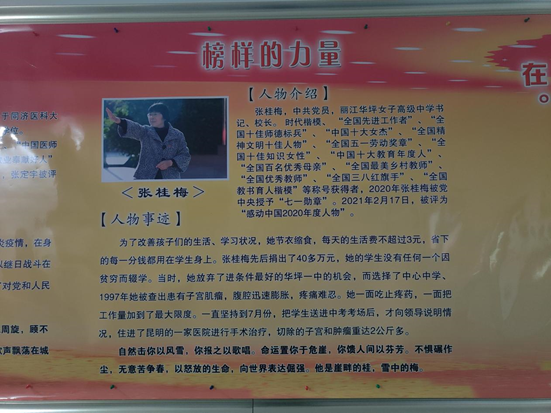 榜样的力量
在
。
【人物介绍】
张桂梅，中共党员，丽江华坪女子高级中学书
记、校长。时代楷模、“全国先进工作者”、“全
国十佳师德标兵”、“中国十大女杰”、“全国精
神文明十佳人物”、“全国五一劳动奖章”、“全
国十佳知识女性”、“中国十大教育年度人”、
“全国百名优秀母亲”、“全国最美乡村教师”、
“全国优秀教师”、“全国三八红旗手”、“全国
教书育人楷模”等称号获得者，2020年张桂梅被党
中央授予“七一勋章”。2021年2月17日，被评为
“感动中国2020年度人物”。
＜张桂梅＞
【人物事迹】
为了改善孩子们的生活、学习状况，她节衣缩食，每天的生活费不超过3元，省下
的每一分钱都用在学生身上。张桂梅先后捐出了40多万元，她的学生没有任何一个因
贫穷而辍学。当时，她放弃了进条件最好的华坪一中的机会，而选择了中心中学、
1997年她被查出患有子宫肌瘤，腹腔迅速膨胀，疼痛难忍。她一面吃止疼药，一面把
工作量加到了最大限度。一直坚持到7月份，把学生送进中考考场后，才向领导说明情
况，住进了昆明的一家医院进行手术治疗，切除的子宫和肿瘤重达2公斤多。
自然击你以风雪，你报之以歌唱。命运置你于危崖，你馈人间以芬芳。不惧碾作
尘，无意苦争春，以怒放的生命，向世界表达倔强。他是崖畔的桂，雪中的梅。
手同济医科大
“中国医师
炎疫情，在身
以继日战斗在
了对党和人民
周旋，顾不
歌声飘荡在城